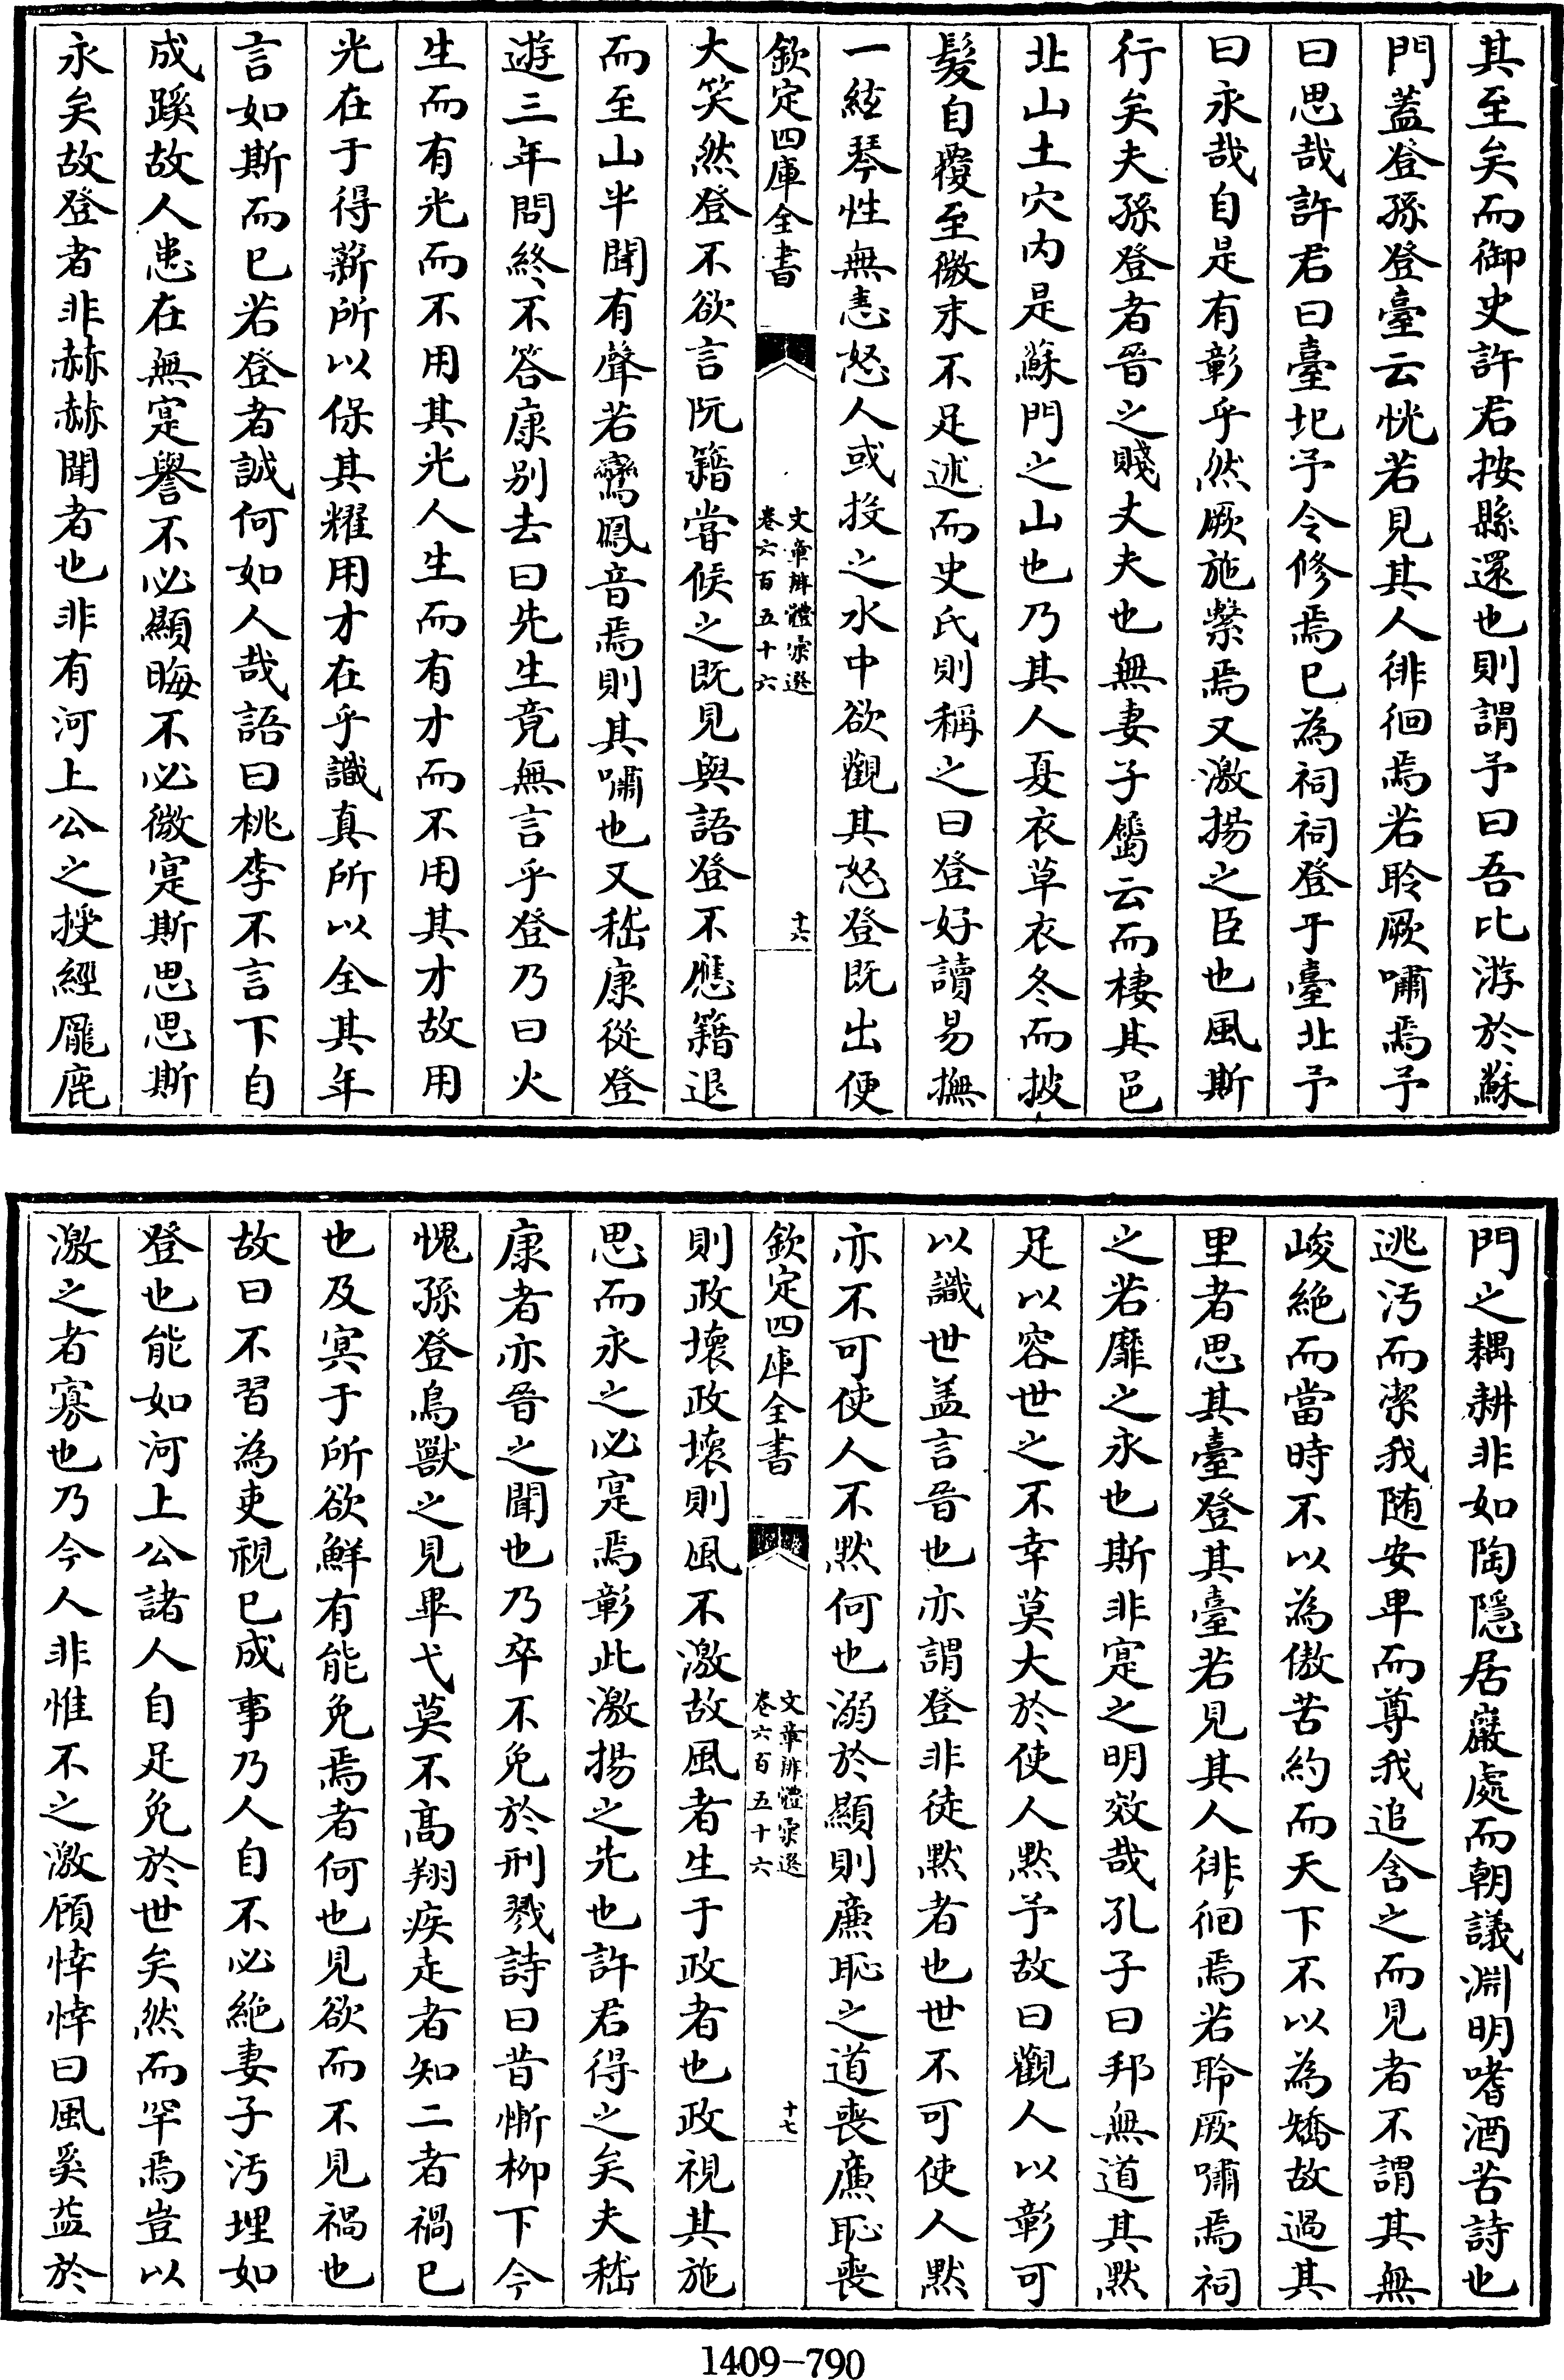 其至矣而御史許君按縣還也則謂予曰吾比游於蘇
門蓋登孫登臺云恍若見其人徘徊焉若聆厥嘯焉予
曰思哉許君曰臺圯予令修焉已為祠祠登于臺北予
曰永哉自是有彰乎然厥施縈焉又激揚之臣也風斯
行矣夫孫登者晉之賤丈夫也無妻子觭云而棲其邑
北山土穴内是蘇門之山也乃其人夏衣草衣冬而披
髮自覆至微末不足述而史氏則稱之曰登好讀易撫
一絃琴性無恚怒人或投之水中欲觀其怒登既出便
欽定四庫全書
文章辨體彚選
卷六百五十六
十六
大笑然登不欲言阮籍嘗候之既見與語登不應籍退
而至山半聞有聲若鸞鳳音焉則其嘯也又嵇康從登
遊三年問終不答康别去曰先生竟無言乎登乃曰火
生而有光而不用其光人生而有才而不用其才故用
光在于得薪所以保其耀用才在乎識真所以全其年
言如斯而已若登者誠何如人哉語曰桃李不言下自
成蹊故人患在無寔譽不必顯晦不必微寔斯思思斯
永矣故登者非赫赫聞者也非有河上公之授經龎鹿
門之耦耕非如陶隱居巖處而朝議淵明嗜酒苦詩也
逃汚而潔我随安卑而尊我追含之而見者不謂其無
峻絶而當時不以為傲苦約而天下不以為矯故過其
里者思其臺登其臺若見其人徘徊焉若聆厥嘯焉祠
之若靡之永也斯非寔之明效哉孔子曰邦無道其默
足以容世之不幸莫大於使人默予故曰觀人以彰可
以識世盖言晉也亦謂登非徒默者也世不可使人默
亦不可使人不默何也溺於顯則廉恥之道喪廉恥喪
欽定四庫全書
文章辨體彚選
卷六百五十六
十七
則政壞政壞則風不激故風者生于政者也政視其施
思而永之必寔焉彰此激揚之先也許君得之矣夫嵇
康者亦晉之聞也乃卒不免於刑戮詩曰昔慚柳下今
愧孫登鳥獸之見畢弋莫不高翔疾走者知二者禍已
也及寘于所欲鮮有能免焉者何也見欲而不見禍也
故曰不習為吏視已成事乃人自不必絶妻子汚埋如
登也能如河上公諸人自足免於世矣然而罕焉豈以
激之者寡也乃今人非惟不之激頋悻悻曰風奚益於
1409-790